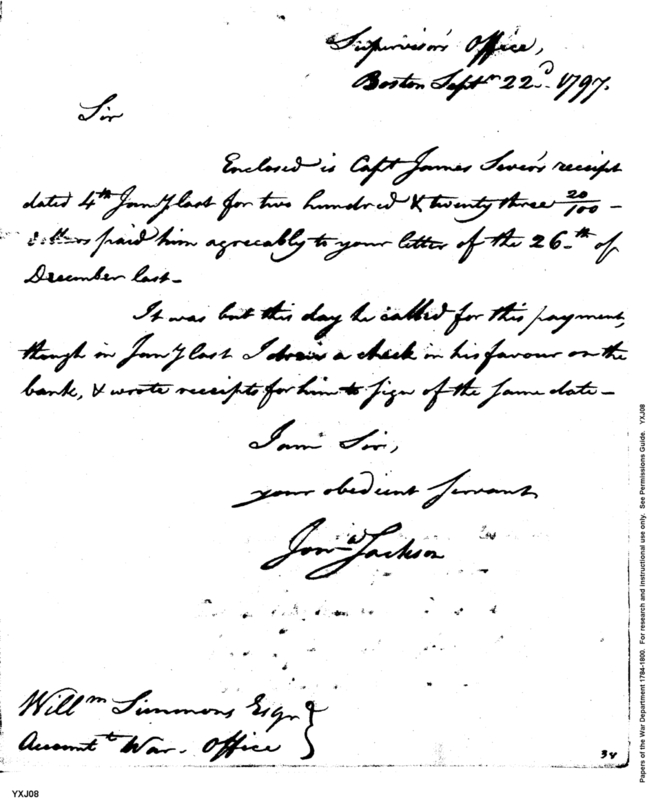 Supervisor's Office,
Boston Septr 22d. 1797.
Sir
Enclosed is Capt James Sever's receipt
dated 4th Jany last for two hundred & twenty three 20/100 –
dollars paid him agreeably to your letter of the 26th of
December last –
It was but this day he called for this payment,
though in Jany last I drew a check in his favour on the
bank, & wrote receipts for him to sign of the same date –
I am Sir,
your obedient servant
Jona Jackson
Willm Simmons Esqr
Accomtt War. Office
34
YXJ08
Papers of the War Department 1784-1800. For research and instructional use only. See Permissions Guide. YXJ08